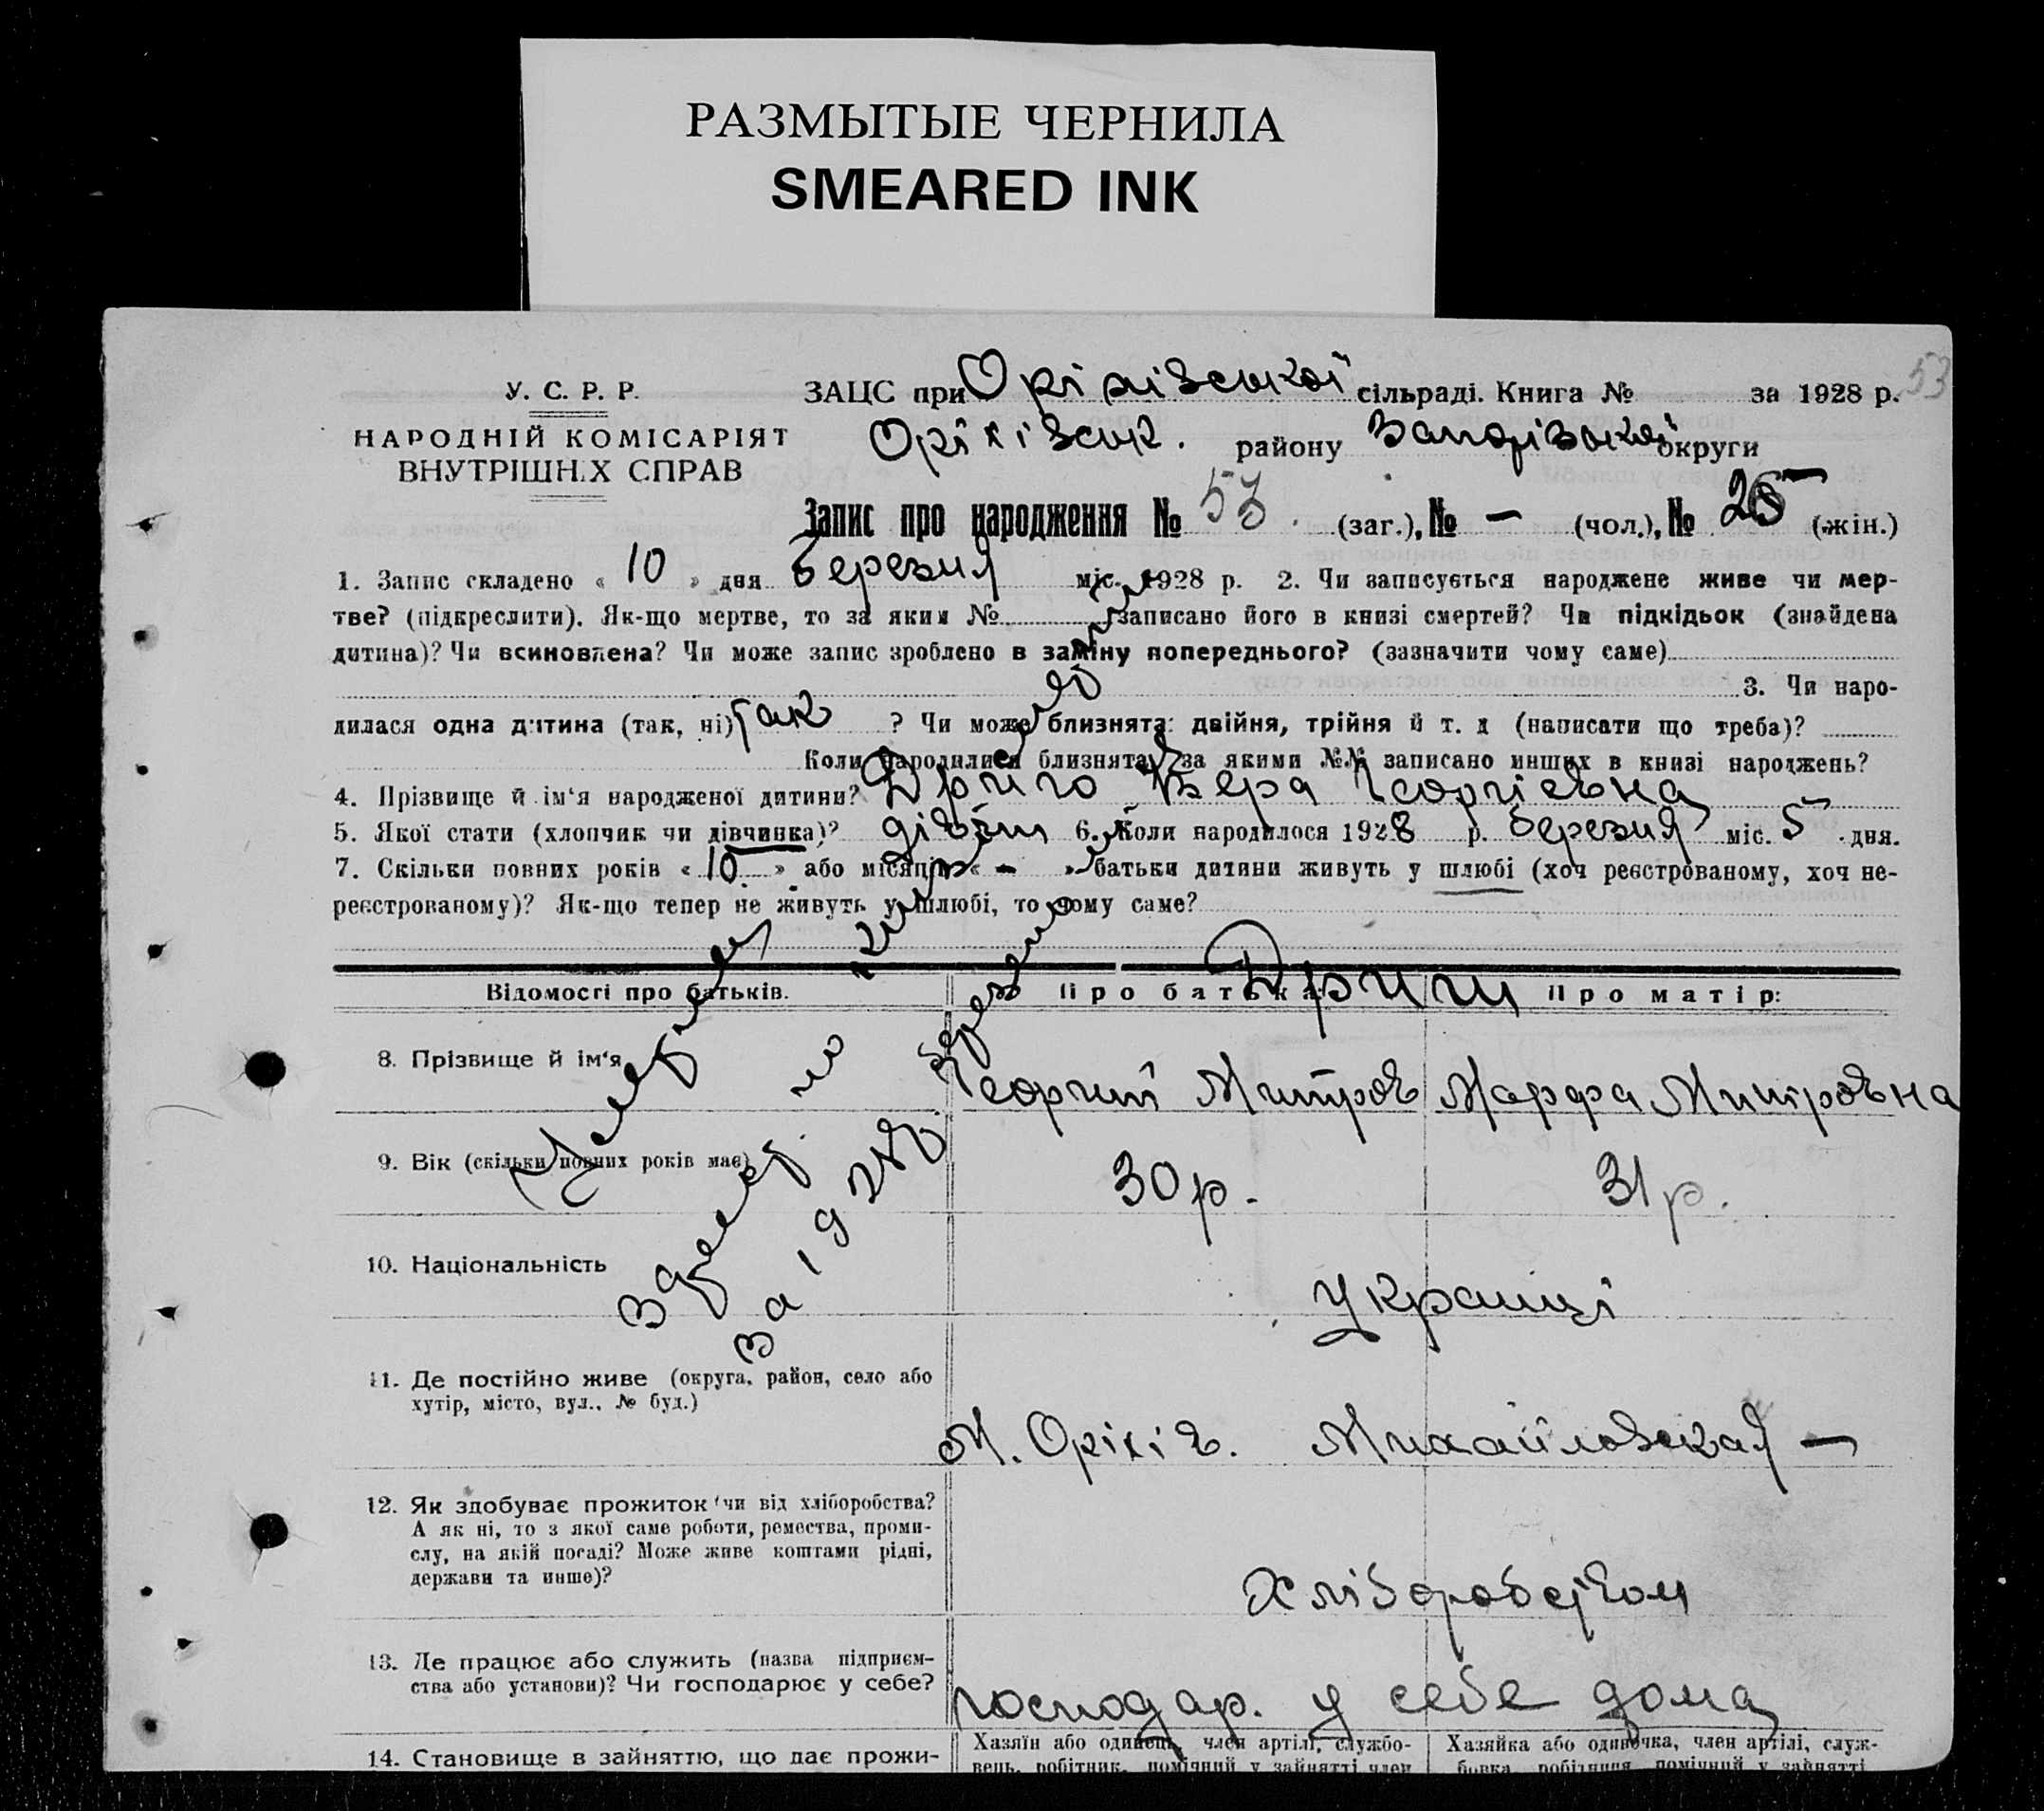 РАЗМЫТЫЕ ЧЕРНИЛА
SMEARED INK
53
У. С. Р. Р.
НАРОДНІЙ КОМІСАРІЯТ
ВНУТРІШНІХ СПРАВ
ЗАЦС при Оріхівської сільраді. Книга № за 1928 р.
Оріхівськ. району Запорізької округи
Запис про народження № 53. (заг.), № — (чол.), № 25 (жін.)
1. Запис складено « 10 » дня березня міс. 1928 р. 2. Чи записується народжене живе чи мер-
тве? (підкреслити). Як-що мертве, то за яким № записано його в книзі смертей? Чи підкідьок (знайдена
дитина)? Чи всиновлена? Чи може запис зроблено в заміну попереднього? (зазначити чому саме)
3. Чи наро-
дилася одна дитина (так, ні) так ? Чи може близнята: двійня, трійня й т. д (написати що треба)?
Коли народилися близнята, за якими №№ записано инших в книзі народжень?
4. Прізвище й ім‘я народженої дитини? Дриго Вера Георгієвна
5. Якої стати (хлопчик чи дівчинка)? дівчин 6. Коли народилося 1928 р. березня міс. 5 дня.
7. Скільки повних років « 10 » або місяців « - » батьки дитини живуть у шлюбі (хоч реєстрованому, хоч не-
реєстрованому)? Як-що тепер не живуть у шлюбі, то чому саме?
Відомості про батьків. Про батька: Про матір:
8. Прізвище й ім‘я
Георгий Митров Марфа Митровна
9. Вік (скільки повних років має)
30 р. 31 р.
10. Національність
Українці
11. Де постійно живе (округа, район, село або
хутір, місто, вул., № буд.)
М. Оріхів. Михайловская —
12. Як здобуває прожиток чи від хліборобства?
А як ні, то з якої саме роботи, ремества, проми-
слу, на якій посаді? Може живе коштами рідні,
держави та инше)?
Хліборобством
13. Де працює або служить (назва підприєм-
ства або установи)? Чи господарює у себе?
господар. у себе дома
14. Становище в зайняттю, що дає прожи-
Хазяїн або одинець, член артілі, службо-
вець, робітник, помічний у зайнятті член
Хазяйка або одиночка, член артілі, служ-
бовка, робітниця, помічний у зайнятті